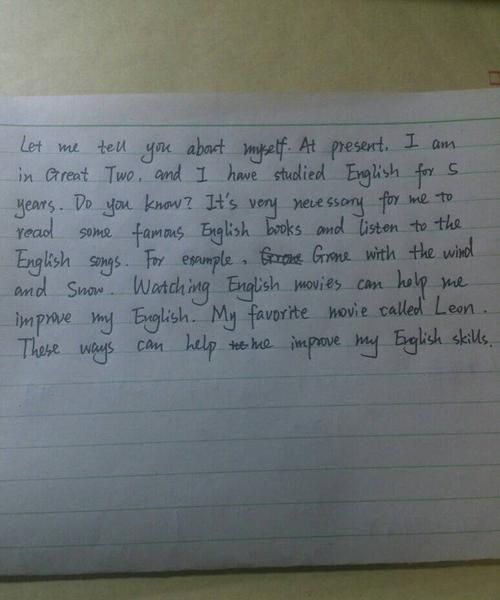 Let me tell you about myself. At present, I am
in Great Two, and I have studied English for 5
years. Do you know? It's very necessary for me to
read some famous English books and listen to the
English songs. For example, Grone with the wind
and Snow. Watching English movies can help me
improve my English. My favorite movie called Leon.
These ways can help me improve my English skills.